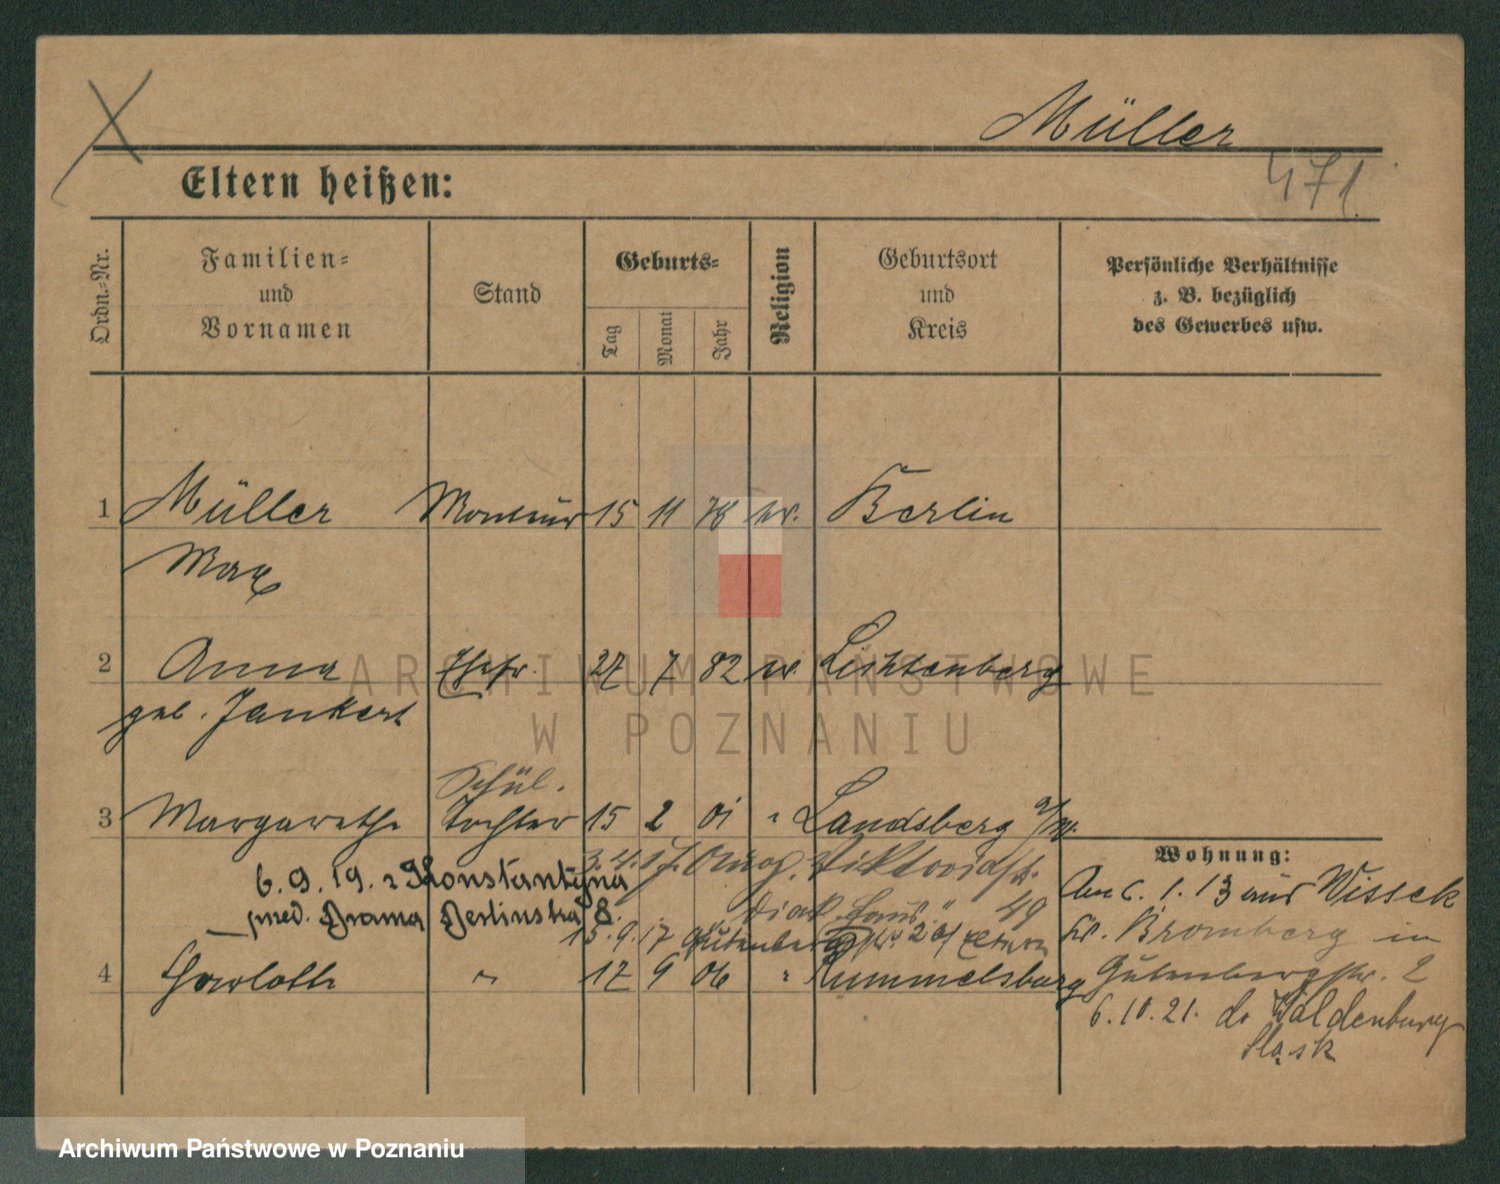 Müller
471
Eltern heißen:
Ordn.-Nr.
Familien-
und
Vornamen
Stand
Geburts-
Tag
Monat
Jahr
Religion
Geburtsort
und
Kreis
Persönliche Verhältnisse
z. B. bezüglich
des Gewerbes usw.
1 Müller Monteur 15 11 78 ev. Berlin
Max
2 Anna Ehefr. 27 7 82 ev. Lichtenberg
geb. Jankert
Schül.
3 Margarethe Tochter 15 2 01 " Landsberg a/W.
Wohnung:
3.4.17. Viktoriastr.
6.9.19. Konstantyna
Am 6.1.13 aus Wissek
Diak. Haus 49
przed. Brama Berlinska 8.
15.9.17 Gutenbergstr. 2 b/ Eltern
Kr. Bromberg in
4 Charlotte " 17 9 06 " Rummelsburg
Gutenbergstr. 2
6.10.21. do Waldenburg
Sląsk
ARCHIWUM PAŃSTWOWE
W POZNANIU
Archiwum Państwowe w Poznaniu